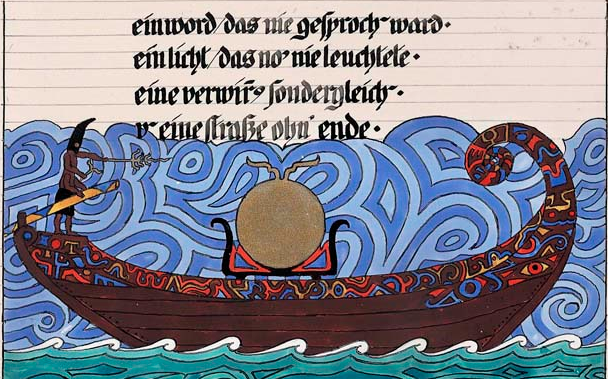 ein word / das nie gesproch ward ·
ein licht / das no' nie leuchtete ·
eine verwirrg sondergleich ·
v eine straße ohn' ende ·